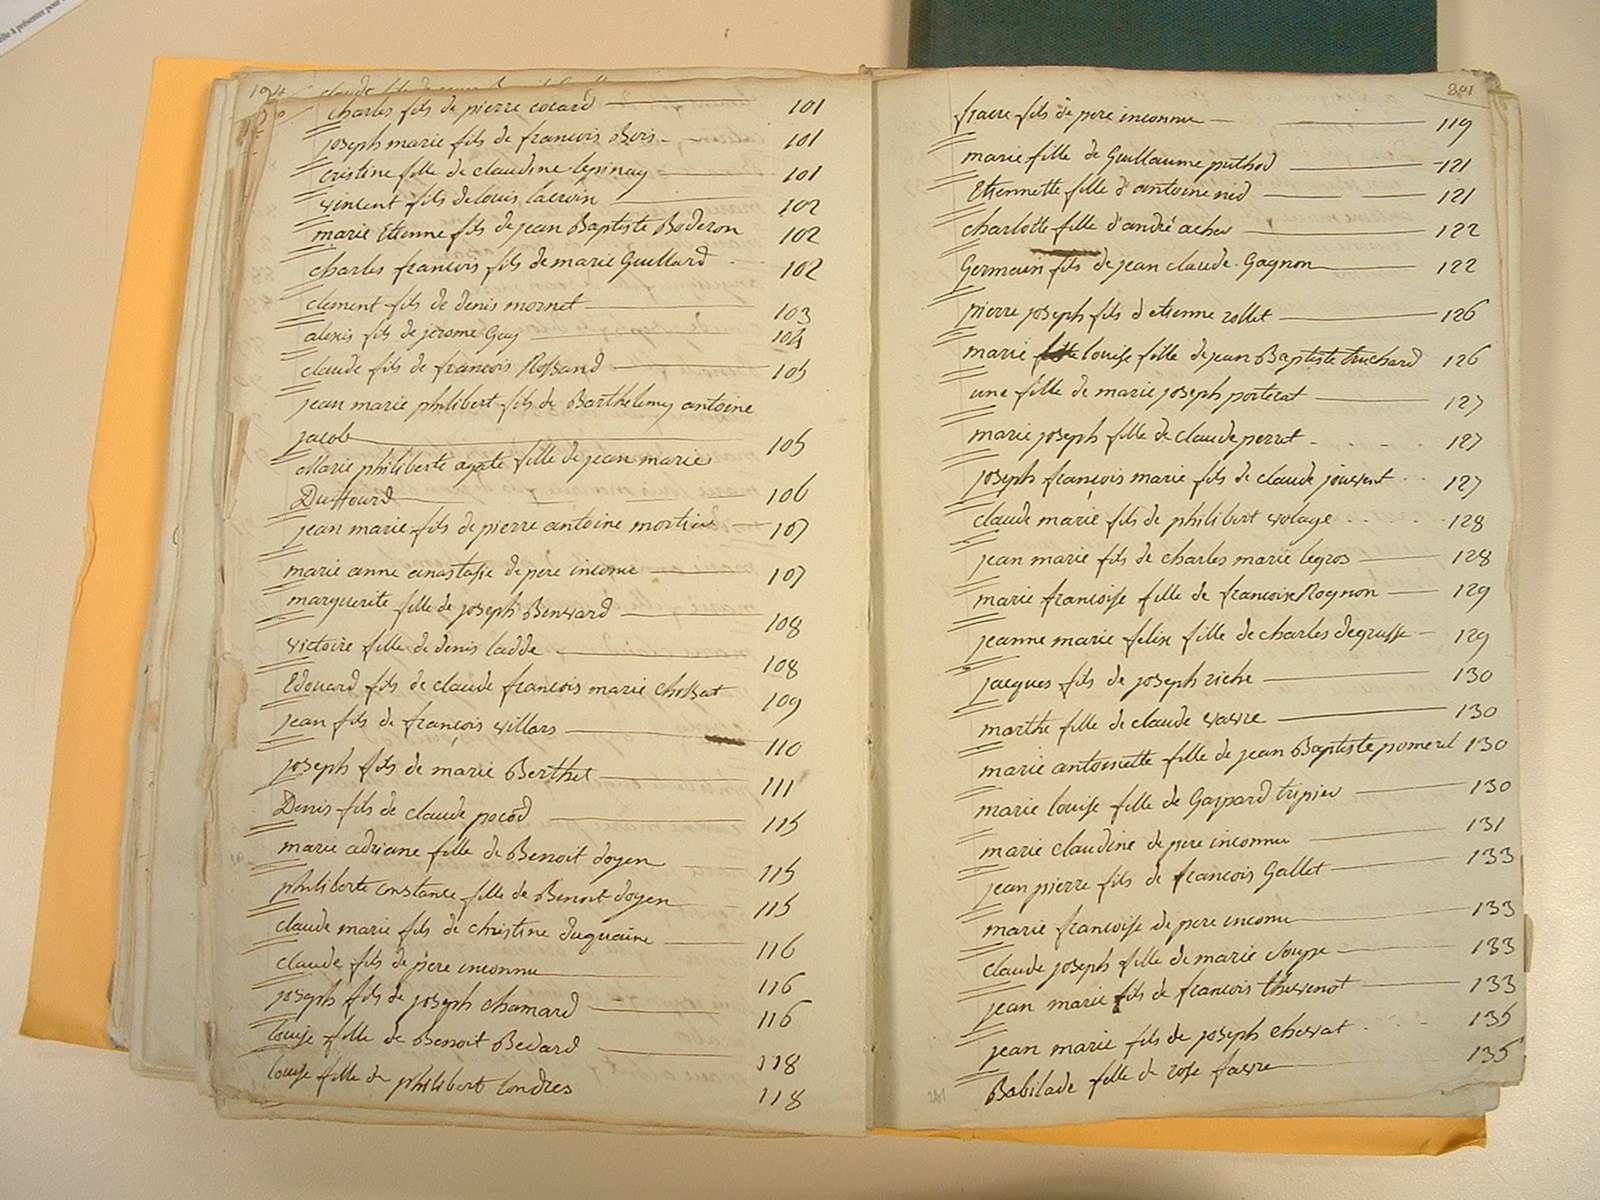 charles fils de pierre cocard 101
joseph marie fils de francois Bois 101
cristine fille de claudine lepinay 101
vincent fils de louis lacroix 102
marie Etienne fils de jean Baptiste Boderon 102
charles francois fils de marie Guillard 102
clement fils de denis mornet 103
alexis fils de jerome Gay 104
claude fils de francois Rossand 105
jean marie philibert fils de Barthelemy antoine
jacob 105
Marie philiberte agate fille de jean marie
Duffourd 106
jean marie fils de pierre antoine mortier 107
marie anne anastasie de pere inconu 107
marguerite fille de joseph Benvard 108
victoire fille de denis ladde 108
Edouard fils de claude francois marie chossat 109
jean fils de françois villars 110
joseph fils de marie Berthet 111
Denis fils de claude pocod 115
marie adriane fille de Benoit doyen 115
philiberte constance fille de Benoit doyen 115
claude marie fils de christine duguaine 116
claude fils de pere inconnu 116
joseph fils de joseph chamard 116
louise fille de Benoit Bedard 118
louise fille de philibert londres 118
201
fils de pere inconnu 119
marie fille de Guillaume puthod 121
Etiennette fille d'antoine nid 121
charlotte fille d'andré acher 122
Germain fils de jean claude Gagnon 122
pierre joseph fils d etienne rollet 126
marie louise fille de jean Baptiste truchard 126
une fille de marie joseph portecat 127
marie joseph fille de claude perret 127
joseph françois marie fils de claude jouvent 127
claude marie fils de philibert volage 128
jean marie fils de charles marie legros 128
marie francoise fille de francoise Rognon 129
jeanne marie felix fille de charles degrusse 129
jacques fils de joseph riche 130
marthe fille de claude vavre 130
marie antoinette fille de jean Baptiste pomeril 130
marie louise fille de Gaspard tripier 130
marie claudine de pere inconnu 131
jean pierre fils de francois Gallet 133
marie francoise de pere inconu 133
claude joseph fille de marie soupe 133
jean marie fils de francois thevenot 133
jean marie fils de joseph chevat 135
Babilade fille de rose favre 135